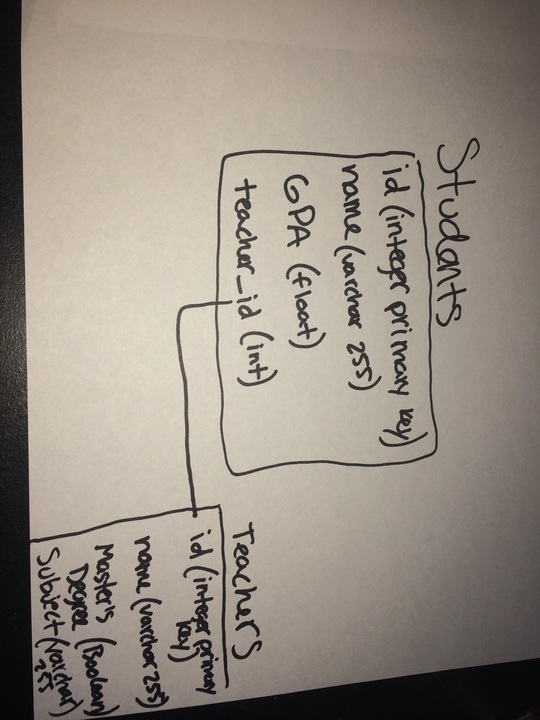 Students
id (integer primary key)
name (varchar 255)
GPA (float)
teacher_id (int)
Teachers
id (integer primary
key)
name (varchar 255)
Master's
Degree (Boolean)
Subject (varchar)
255